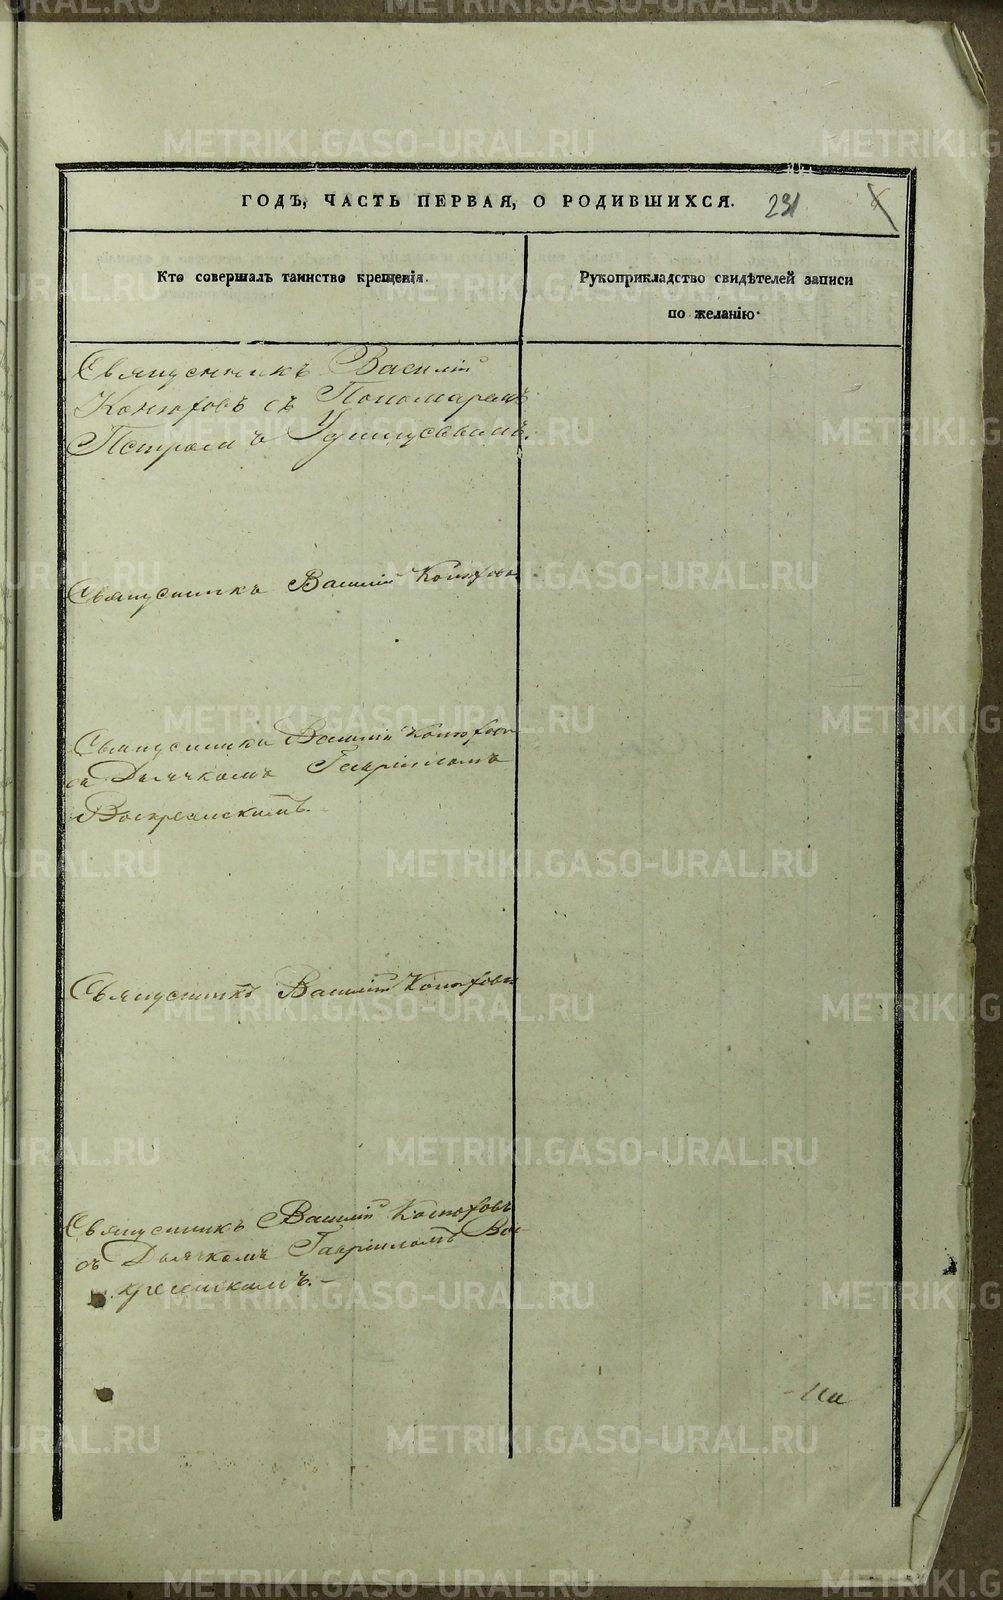 ГОДЪ, ЧАСТЬ ПЕРВАЯ, О РОДИВШИХСЯ. 231
Кто совершалъ таинство крещенія.
Рукоприкладство свидѣтелей записи
по желанію.
Священникъ Василій
Конюховъ съ Пономаремъ
Петромъ
Священникъ Василій Конюховъ
Священникъ Василій Конюховъ
съ Дьячкомъ Гавріиломъ
Воскресенскимъ.
Священникъ Василій Конюховъ
Священникъ Василій Конюховъ
съ Дьячкомъ Гавріиломъ Вос-
кресенскимъ.
METRIKI.GASO-URAL.RU